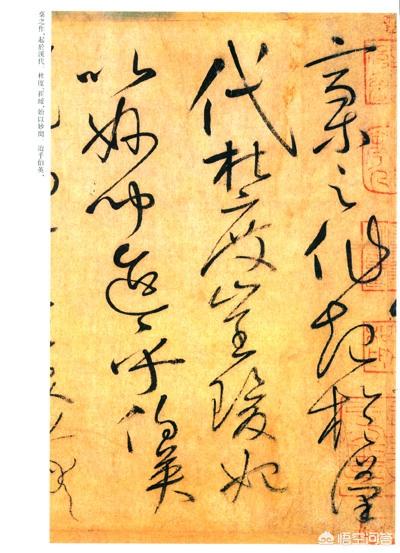 稾之作起於漢
代杜度崔瑗始
以妙聞迨乎伯英
稾之作，起於漢代，杜度、崔瑗，始以妙聞。迨乎伯英，
悟空问答